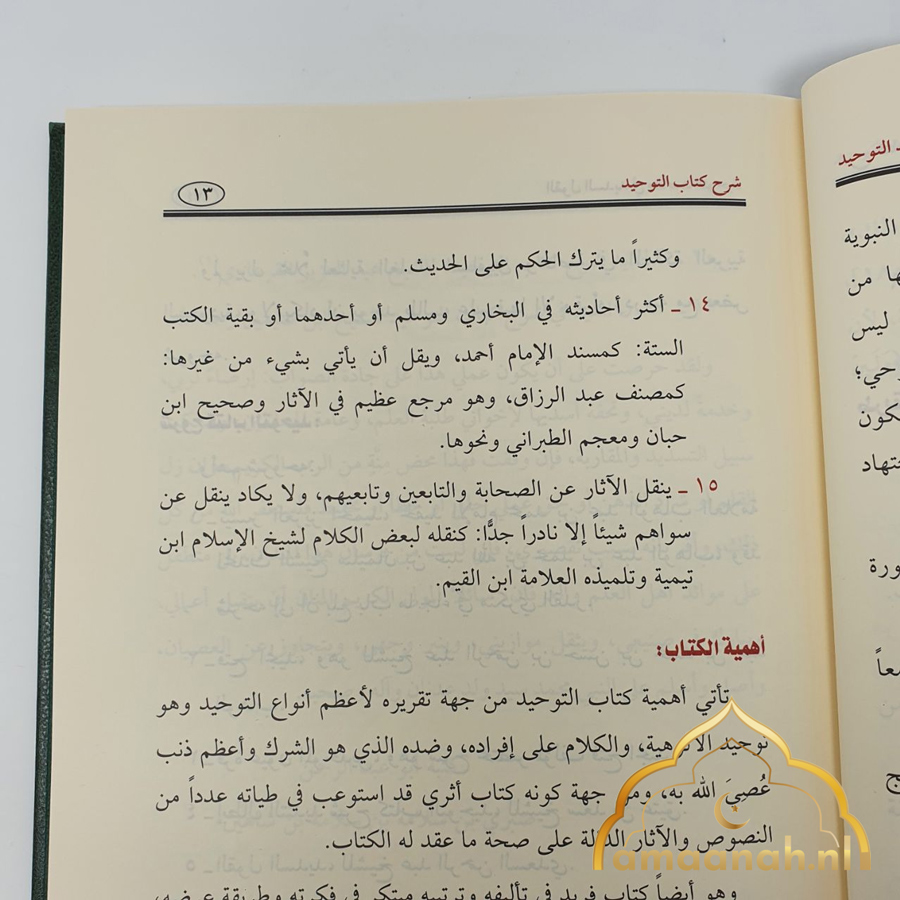 شرح كتاب التوحيد
١٣
وكثيراً ما يترك الحكم على الحديث.
١٤ ـ أكثر أحاديثه في البخاري ومسلم أو أحدهما أو بقية الكتب
الستة: كمسند الإمام أحمد، ويقل أن يأتي بشيء من غيرها:
كمصنف عبد الرزاق، وهو مرجع عظيم في الآثار وصحيح ابن
حبان ومعجم الطبراني ونحوها.
١٥ ـ ينقل الآثار عن الصحابة والتابعين وتابعيهم، ولا يكاد ينقل عن
سواهم شيئاً إلا نادراً جدًّا: كنقله لبعض الكلام لشيخ الإسلام ابن
تيمية وتلميذه العلامة ابن القيم.
أهمية الكتاب:
تأتي أهمية كتاب التوحيد من جهة تقريره لأعظم أنواع التوحيد وهو
توحيد الألوهية، والكلام على إفراده، وضده الذي هو الشرك وأعظم ذنب
عُصِيَ الله به، ومن جهة كونه كتاب أثري قد استوعب في طياته عدداً من
النصوص والآثار الدالة على صحة ما عقد له الكتاب.
وهو أيضاً كتاب فريد في تأليفه وترتيبه مبتكر في فكرته وطريقة عرضه،
التوحيد
النبوية
ها من
ليس
amaanah.nl